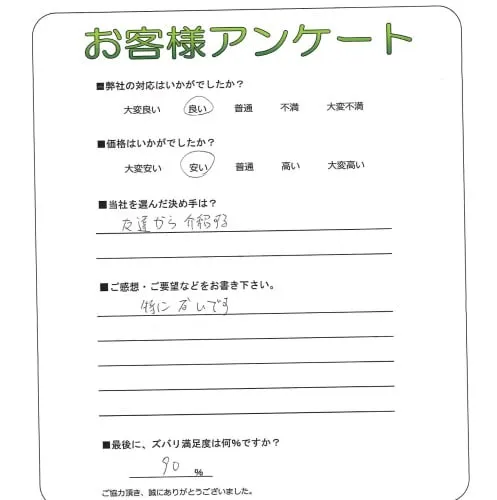 お客様アンケート
■弊社の対応はいかがでしたか？
大変良い 良い 普通 不満 大変不満
■価格はいかがでしたか？
大変安い 安い 普通 高い 大変高い
■当社を選んだ決め手は？
友達から 介紹する
■ご感想・ご要望などをお書き下さい。
特に ないです
■最後に、ズバリ満足度は何％ですか？
90 %
ご協力頂き、誠にありがとうございました。